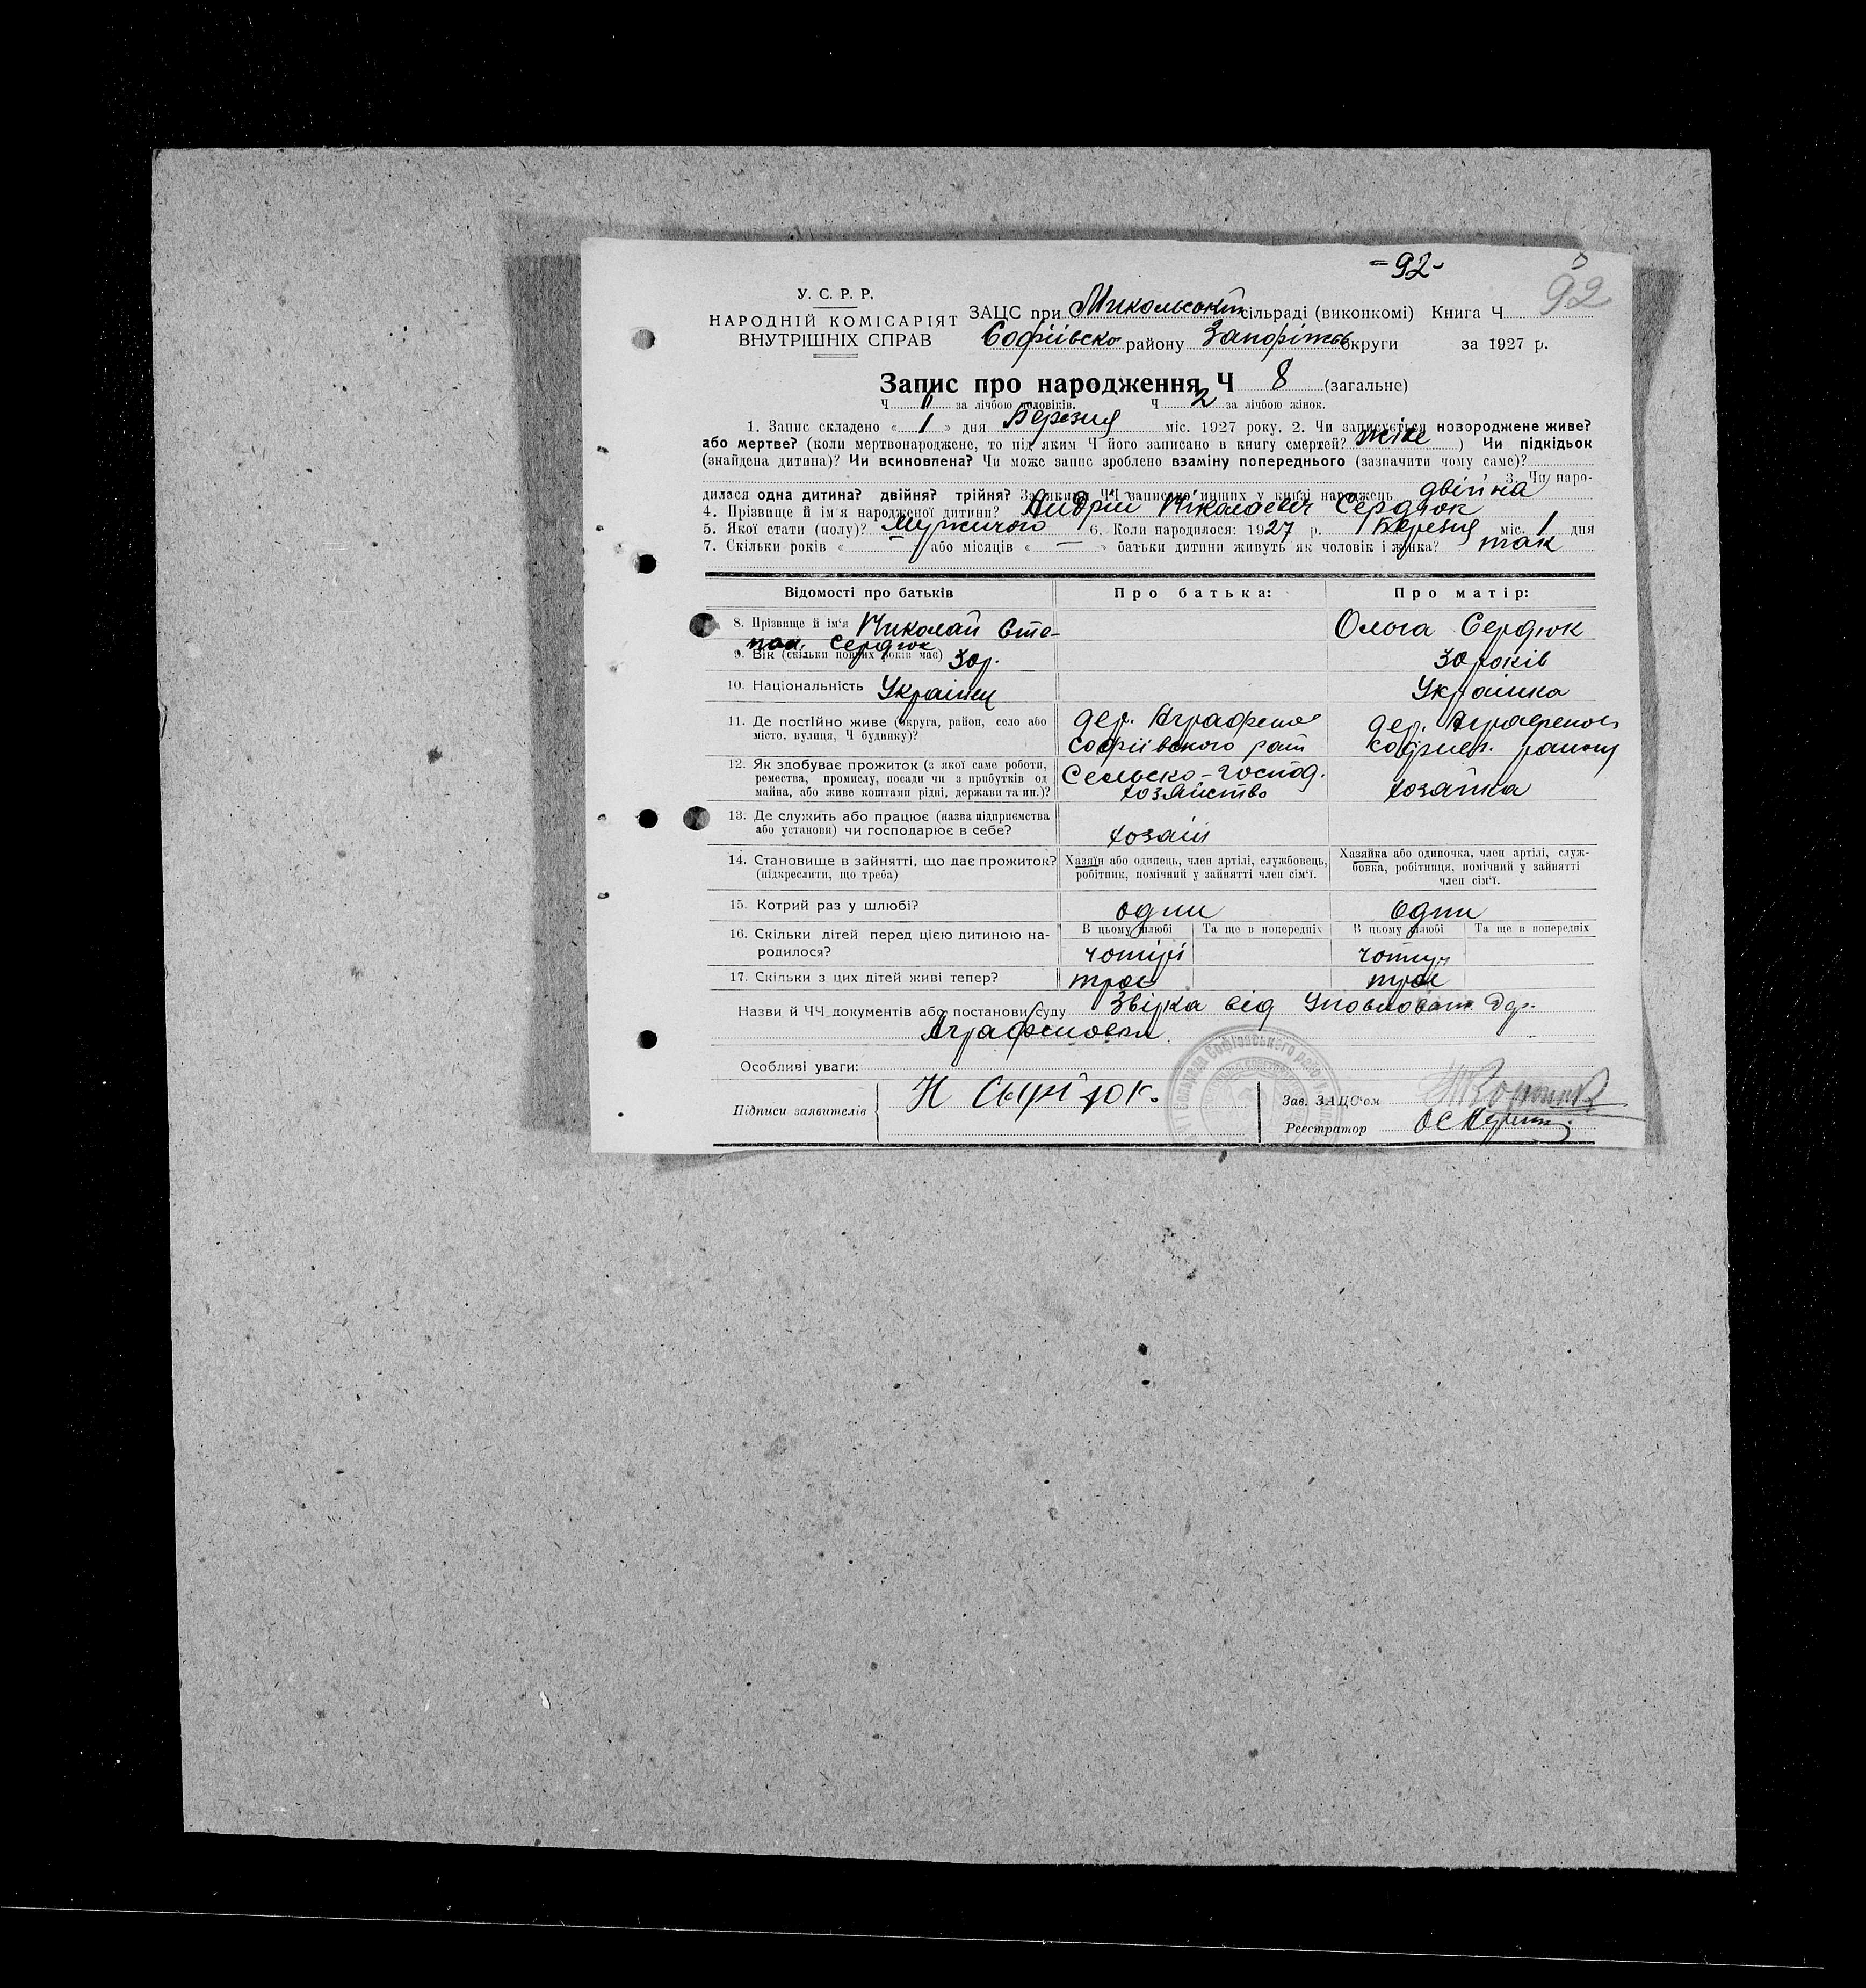 -92-
92
У. С. Р. Р.
НАРОДНІЙ КОМІСАРІЯТ
ВНУТРІШНІХ СПРАВ
ЗАЦС при Микольській сільраді (виконкомі) Книга Ч
Софіівско району Запоріжсь округи за 1927 р.
Запис про народження Ч 8 (загальне)
Ч за лічбою чоловіків. Ч 2 за лічбою жінок.
1. Запис складено « 1 » дня Березня міс. 1927 року. 2. Чи записується новороджене живе?
або мертве? (коли мертвонароджене, то під яким Ч його записано в книгу смертей? живе ) Чи підкідьок
(знайдена дитина)? Чи всиновлена? Чи може запис зроблено взаміну попереднього (зазначити чому саме)?
3. Чи наро-
дилася одна дитина? двійня? трійня? За яким ЧЧ записано инших у книзі народжень двійна
4. Прізвище й ім'я народженої дитини? Андрій Ніколаєвіч Сердюк
5. Якої стати (полу)? Мужичого 6. Коли народилося: 1927 р. Березня міс. 1 дня
7. Скільки років « — » або місяців « — » батьки дитини живуть як чоловік і жінка? так
Відомості про батьків Про батька: Про матір:
8. Прізвище й ім'я Николай Сте- Ольга Сердюк
пан. Сердюк
9. Вік (скільки повних років має) 30р. 30 років
10. Національність Украінец Украінка
11. Де постійно живе (округа, район, село або дер. Аграфенов
місто, вулиця, Ч будинку)? Софіівского рай дер. Аграфенов
Софиев. району
12. Як здобуває прожиток (з якої саме роботи, Сельско-господ.
ремества, промислу, посади чи з прибутків од
майна, або живе коштами рідні, держави та ин.)? хозяйство хозайка
13. Де служить або працює (назва підприємства
або установи) чи господарює в себе? хозаін
14. Становище в зайнятті, що дає прожиток? Хазяїн або одинець, член артілі, службовець, Хазяйка або одиночка, член артілі, служ-
(підкреслити, що треба) робітник, помічний у зайнятті член сім'ї. бовка, робітниця, помічний у зайнятті
член сім'ї.
15. Котрий раз у шлюбі? один один
16. Скільки дітей перед цією дитиною на- В цьому шлюбі Та ще в попередніх В цьому шлюбі Та ще в попередніх
родилося? чотирі чотири
17. Скільки з цих дітей живі тепер? троє троє
Назви й ЧЧ документів або постанови суду Звірка від Уповноваж. др.
Аграфеновки
Особливі уваги:
Підписи заявителів Н Сердюк.
Зав. ЗАЦС'ом
Реєстратор